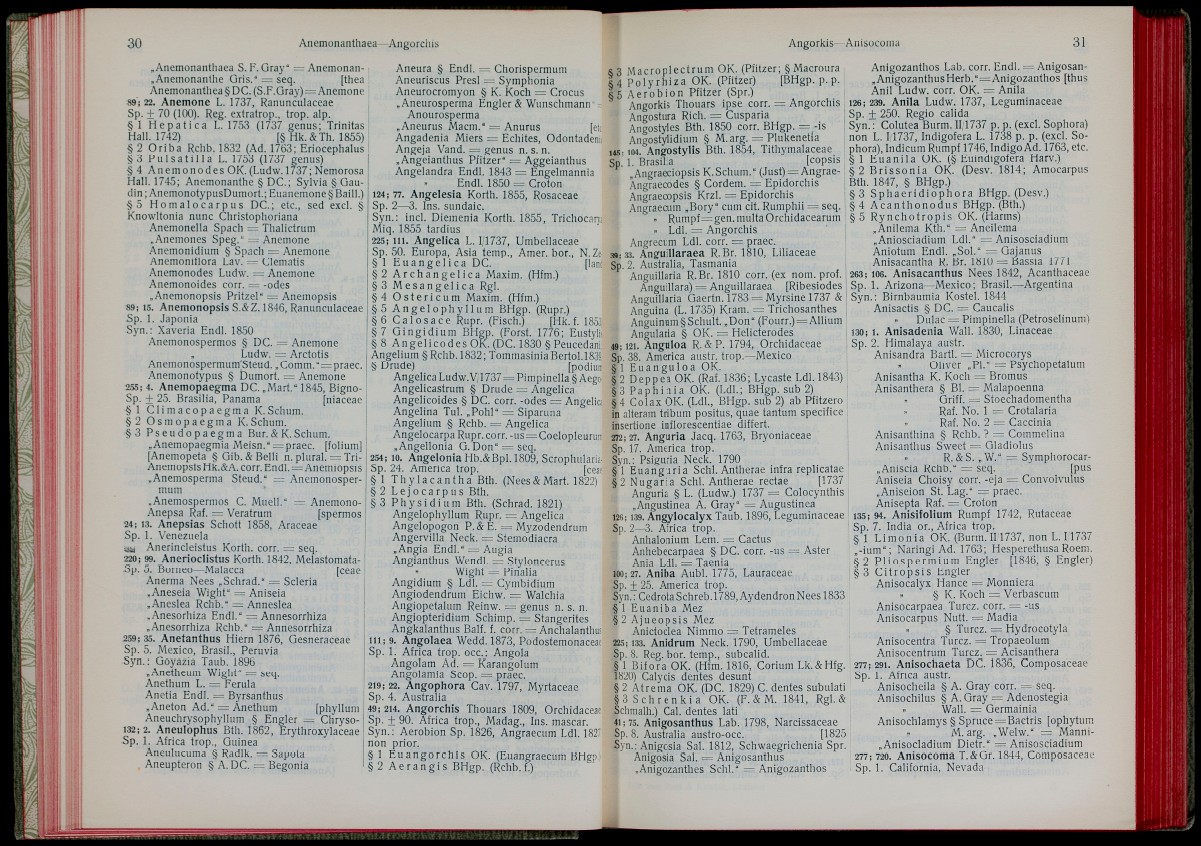 30
Anemonanthaea—Angorchis
„Anemonanthaea S. F. Gray“ = Anemonan-
„Anemonanthe Gris.“ = seq. [thea
Anemonanthea § DC. (S.F.Gray) = Anemone
89; 22. Anemone L. 1737, Ranunculaceae
Sp. ± 70 (100). Reg. extratrop., trop. alp.
§ 1 Hepatica L. 1753 (1737 genus; Trinitas
Hall. 1742) [§ Hk. & Th. 1855)
§ 2 Oriba Rchb. 1832 (Ad. 1763; Eriocephalus
§ 3 Pulsatilla L. 1753 (1737 genus)
§ 4 Anemonodes OK. (Ludw. 1737; Nemorosa
Hall. 1745; Anemonanthe § DC.; Sylvia § Gau-
din; Anemonotypus Dumort.; Euanemone § Baill.)
§ 5 Homalocarpus DC.; etc., sed excl. §
Knowltonia nunc Christophoriana
Anemonella Spach = Thalictrum
„Anemones Speg.“ = Anemone
Anemonidium § Spach = Anemone
Anemoniflora Lav. = Clematis
Anemonodes Ludw. = Anemone
Anemonoides corr. = -odes
„Anemonopsis Pritzel“ = Anemopsis
89; 15. Anemonopsis S. & Z. 1846, Ranunculaceae
Sp. 1. Japonia
Syn.: Xaveria Endl. 1850
Anemonospermos § DC. = Anemone
„ Ludw. = Arctotis
Anemonospermum Steud. „Comm.“ = praec.
Anemonotypus § Dumort. = Anemone
255; 4. Anemopaegma DC. „Mart.“ 1845, Bigno-
Sp. ± 25. Brasilia, Panama [niaceae
§ 1 Climacopaegma K. Schum.
§ 2 Osmopaegma K. Schum.
§ 3 Pseudopaegma Bur. & K. Schum.
„Anemopaegmia Meisn.“ = praec. [folium]
[Anemopeta § Gib. & Belli n. plural. = Tri-
Anemopsis Hk. & A. corr. Endl. = Anemiopsis
„Anemosperma Steud.“ = Anemonosper-
mum
„Anemospermos C. Muell.“ = Anemono-
Anepsa Raf. = Veratrum [spermos
24; 13. Anepsias Schott 1858, Araceae
Sp. 1. Venezuela
Anerincleistus Korth. corr. = seq.
220; 99. Anerioclistus Korth. 1842, Melastomata-
Sp. 5. Borneo—Malacca [ceae
Anerma Nees „Schrad.“ = Scleria
„Aneseia Wight“ = Aniseia
„Aneslea Rchb.“ = Anneslea
„Anesorhiza Endl.“ = Annesorrhiza
„Anesorrhiza Rchb.“ = Annesorrhiza
259; 35. Anetanthus Hiern 1876, Gesneraceae
Sp. 5. Mexico, Brasil., Peruvia
Syn.: Goyazia Taub. 1896
„Anetheum Wight“ = seq.
Anethum L. = Ferula
Anetia Endl. = Byrsanthus
„Aneton Ad.“ = Anethum [phyllum
Aneuchrysophyllum § Engler = Chryso-
132; 2. Aneulophus Bth. 1862, Erythroxylaceae
Sp. 1. Africa trop., Guinea
Aneulucuma § Radlk. = Sapota
Aneupteron § A. DC. = Begonia
Aneura § Endl. = Chorispermum
Aneuriscus Presl = Symphonia
Aneurocromyon § K. Koch = Crocus
„Aneurosperma Engler & Wunschmann“ =
Anourosperma
„Aneurus Macm.“ = Anurus
Angadenia Miers = Echites, Odontadeni
Angeja Vand. = genus n. s. n.
„Angeianthus Pfitzer“ = Aggeianthus
Angelandra Endl. 1843 = Engelmannia
„ Endl. 1850 = Croton
124; 77. Angelesia Korth. 1855, Rosaceae
Sp. 2—3. Ins. sundaic.
Syn.: incl. Diemenia Korth. 1855, Trichocar
Miq. 1855 tardius
225; 111. Angelica L. I 1737, Umbellaceae
Sp. 50. Europa, Asia temp., Amer. bor., N. Ze
§ 1 Euangelica DC. [lan
§ 2 Archangelica Maxim. (Hfm.)
§ 3 Mesangelica Rgl.
§ 4 Ostericum Maxim. (Hfm.)
§ 5 Angelophyllum BHgp. (Rupr.)
§ 6 Calosace Rupr. (Fisch.) [Hk. f. 185
§ 7 Gingidium BHgp. (Forst. 1776; Eustyli
§ 8 Angelicodes OK. (DC. 1830 § Peucedan
Angelium § Rchb. 1832; Tommasinia Bertol. 183
§ Drude) [podium
Angelica Ludw. V 1737 = Pimpinella § Aego
Angelicastrum § Drude = Angelica
Angelicoides § DC. corr. -odes = Angelic
Angelina Tul. „Pohl“ = Siparuna
Angelium § Rchb. = Angelica
Angelocarpa Rupr. corr. -us = Coelopleurum
„Angellonia G. Don“ = seq.
254; 10. Angelonia Hb. & Bpl. 1809, Scrophularia
Sp. 24. America trop. [cea
§ 1 Thylacantha Bth. (Nees & Mart. 1822)
§ 2 Lejocarpus Bth.
§ 3 Physidium Bth. (Schrad. 1821)
Angelophyllum Rupr. = Angelica
Angelopogon P. & E. = Myzodendrum
Angervilla Neck. = Stemodiacra
„Angia Endl.“ = Augia
Angianthus Wendl. = Styloncerus
„ Wight = Pinalia
Angidium § Ldl. = Cymbidium
Angiodendrum Eichw. = Walchia
Angiopetalum Reinw. = genus n. s. n.
Angiopteridium Schimp. = Stangerites
Angkalanthus Balf. f. corr. = Anchalanthu
111; 9. Angolaea Wedd. 1873, Podostemonaceae
Sp. 1. Africa trop. occ.: Angola
Angolam Ad. = Karangolum
Angolamia Scop. = praec.
219; 22. Angophora Cav. 1797, Myrtaceae
Sp. 4. Australia
49; 214. Angorchis Thouars 1809, Orchidaceae
Sp. ± 90. Africa trop., Madag., Ins. mascar.
Syn.: Aerobion Sp. 1826, Angraecum Ldl. 182
non prior.
§ 1 Euangorchis OK. (Euangraecum BHgp
§ 2 Aerangis BHgp. (Rchb. f.)
Angorkis—Anisocoma
31
§ 3 Macroplectrum OK. (Pfitzer; § Macroura
§ 4 Polyrhiza OK. (Pfitzer) [BHgp. p. p.
§ 5 Aerobion Pfitzer (Spr.)
Angorkis Thouars ipse corr. = Angorchis
Angostura Rich. = Cusparia
Angostyles Bth. 1850 corr. BHgp. = -is
Angostylidium § M. arg. = Plukenetia
145; 104. Angostylis Bth. 1854, Tithymalaceae
Sp. 1. Brasilia [copsis
„Angraeciopsis K. Schum.“ (Just) = Angrae-
Angraecodes § Cordem. = Epidorchis
Angraecopsis Krzl. = Epidorchis
Angraecum „Bory“ cum cit. Rumphii = seq.
„ Rumpf = gen. multa Orchidacearum
„ Ldl. = Angorchis
Angrecum Ldl. corr. = praec.
39; 33. Anguillaraea R. Br. 1810, Liliaceae
Sp. 2. Australia, Tasmania
Anguillaria R. Br. 1810 corr. (ex nom. prof.
Anguillara) = Anguillaraea [Ribesiodes
Anguillaria Gaertn. 1783 = Myrsine 1737 &
Anguina (L. 1735) Kram. = Trichosanthes
Anguinum § Schult. „Don“ (Fourr.) = Allium
Angularia § OK. = Helicterodes
49; 121. Anguloa R. & P. 1794, Orchidaceae
Sp. 38. America austr. trop.—Mexico
§ 1 Euanguloa OK.
§ 2 Deppea OK. (Raf. 1836; Lycaste Ldl. 1843)
§ 3 Paphinia OK. (Ldl.; BHgp. sub 2)
§ 4 Colax OK. (Ldl., BHgp. sub 2) ab Pfitzero
in alteram tribum positus, quae tantum specifice
insertione inflorescentiae differt.
272; 27. Anguria Jacq. 1763, Bryoniaceae
Sp. 17. America trop.
Syn.: Psiguria Neck. 1790
§ 1 Euanguria Schl. Antherae infra replicatae
§ 2 Nugaria Schl. Antherae rectae [1737
Anguria § L. (Ludw.) 1737 = Colocynthis
„Angustinea A. Gray“ = Augustinea
126; 139. Angylocalyx Taub. 1896, Leguminaceae
Sp. 2—3. Africa trop.
Anhalonium Lem. = Cactus
Anhebecarpaea § DC. corr. -us = Aster
Ania Ldl. = Taenia
100; 27. Aniba Aubl. 1775, Lauraceae
Sp. ± 25. America trop.
Syn.: Cedrota Schreb. 1789, Aydendron Nees 1833
§ 1 Euaniba Mez
§ 2 Ajueopsis Mez
Anictoclea Nimmo = Tetrameles
225; 133. Anidrum Neck. 1790, Umbellaceae
Sp. 8. Reg. bor. temp., subcalid.
§ 1 Bifora OK. (Hfm. 1816, Corium Lk. & Hfg.
1820) Calycis dentes desunt
§ 2 Atrema OK. (DC. 1829) C. dentes subulati
§ 3 Schrenkia OK. (F. & M. 1841, Rgl. &
Schmalh.) Cal. dentes lati
41; 75. Anigosanthus Lab. 1798, Narcissaceae
Sp. 8. Australia austro-occ. [1825
Syn.: Anigosia Sal. 1812, Schwaegrichenia Spr.
Anigosia Sal. = Anigosanthus
„Anigozanthes Schl.“ = Anigozanthos
Anigozanthos Lab. corr. Endl. = Anigosan-
„Anigozanthus Herb.“ = Anigozanthos [thus
Anil Ludw. corr. OK. = Anila
126; 239. Anila Ludw. 1737, Leguminaceae
Sp. ± 250. Regio calida
Syn.: Colutea Burm. II 1737 p. p. (excl. Sophora)
non L. I 1737, Indigofera L. 1738 p. p. (excl. So-
phora), Indicum Rumpf 1746, Indigo Ad. 1763, etc.
§ 1 Euanila OK. (§ Euindigofera Harv.)
§ 2 Brissonia OK. (Desv. 1814; Amocarpus
Bth. 1847, § BHgp.)
§ 3 Sphaeridiophora BHgp. (Desv.)
§ 4 Acanthonodus BHgp. (Bth.)
§ 5 Rynchotropis OK. (Harms)
„Anilema Kth.“ = Aneilema
„Aniosciadium Ldl.“ = Anisosciadium
Aniotum Endl. „Sol.“ = Gajanus
Anisacantha R. Br. 1810 = Bassia 1771
263; 106. Anisacanthus Nees 1842, Acanthaceae
Sp. 1. Arizona—Mexico; Brasil.—Argentina
Syn.: Birnbaumia Kostel. 1844
Anisactis § DC. = Caucalis
„ Dulac = Pimpinella (Petroselinum)
130; 1. Anisadenia Wall. 1830, Linaceae
Sp. 2. Himalaya austr.
Anisandra Bartl. = Microcorys
„ Oliver „Pl.“ = Psychopetalum
Anisantha K. Koch = Bromus
Anisanthera § Bl. = Malapoenna
„ Griff. = Stoechadomentha
„ Raf. No. 1 = Crotalaria
„ Raf. No. 2 = Caccinia
Anisanthina § Rchb. ? = Commelina
Anisanthus Sweet = Gladiolus
„ R. & S. „W.“ = Symphorocar-
„Aniscia Rchb.“ = seq. [pus
Aniseia Choisy corr. -eja = Convolvulus
„Aniseion St. Lag.“ = praec.
Anisepta Raf. = Croton
135; 94. Anisifolium Rumpf 1742, Rutaceae
Sp. 7. India or., Africa trop.
§ 1 Limonia OK. (Burm. II 1737, non L. I 1737
„-ium“; Naringi Ad. 1763; Hesperethusa Roem.
§ 2 Pliospermium Engler [1846, § Engler)
§ 3 Citropsis Engler
Anisocalyx Hance = Monniera
„ § K. Koch = Verbascum
Anisocarpaea Turcz. corr. = -us
Anisocarpus Nutt. = Madia
„ § Turcz. = Hydrocotyla
Anisocentra Turcz. = Tropaeolum
Anisocentrum Turcz. = Acisanthera
277; 291. Anisochaeta DC. 1836, Composaceae
Sp. 1. Africa austr.
Anisocheila § A. Gray corr. = seq.
Anisochilus § A. Gray = Adenostegia
„ Wall. = Germainia
Anisochlamys § Spruce = Bactris [ophytum
„ M. arg. „Welw.“ = Manni-
„Anisocladium Dietr.“ = Anisosciadium
277; 720. Anisocoma T. & Gr. 1844, Composaceae
Sp. 1. California, Nevada